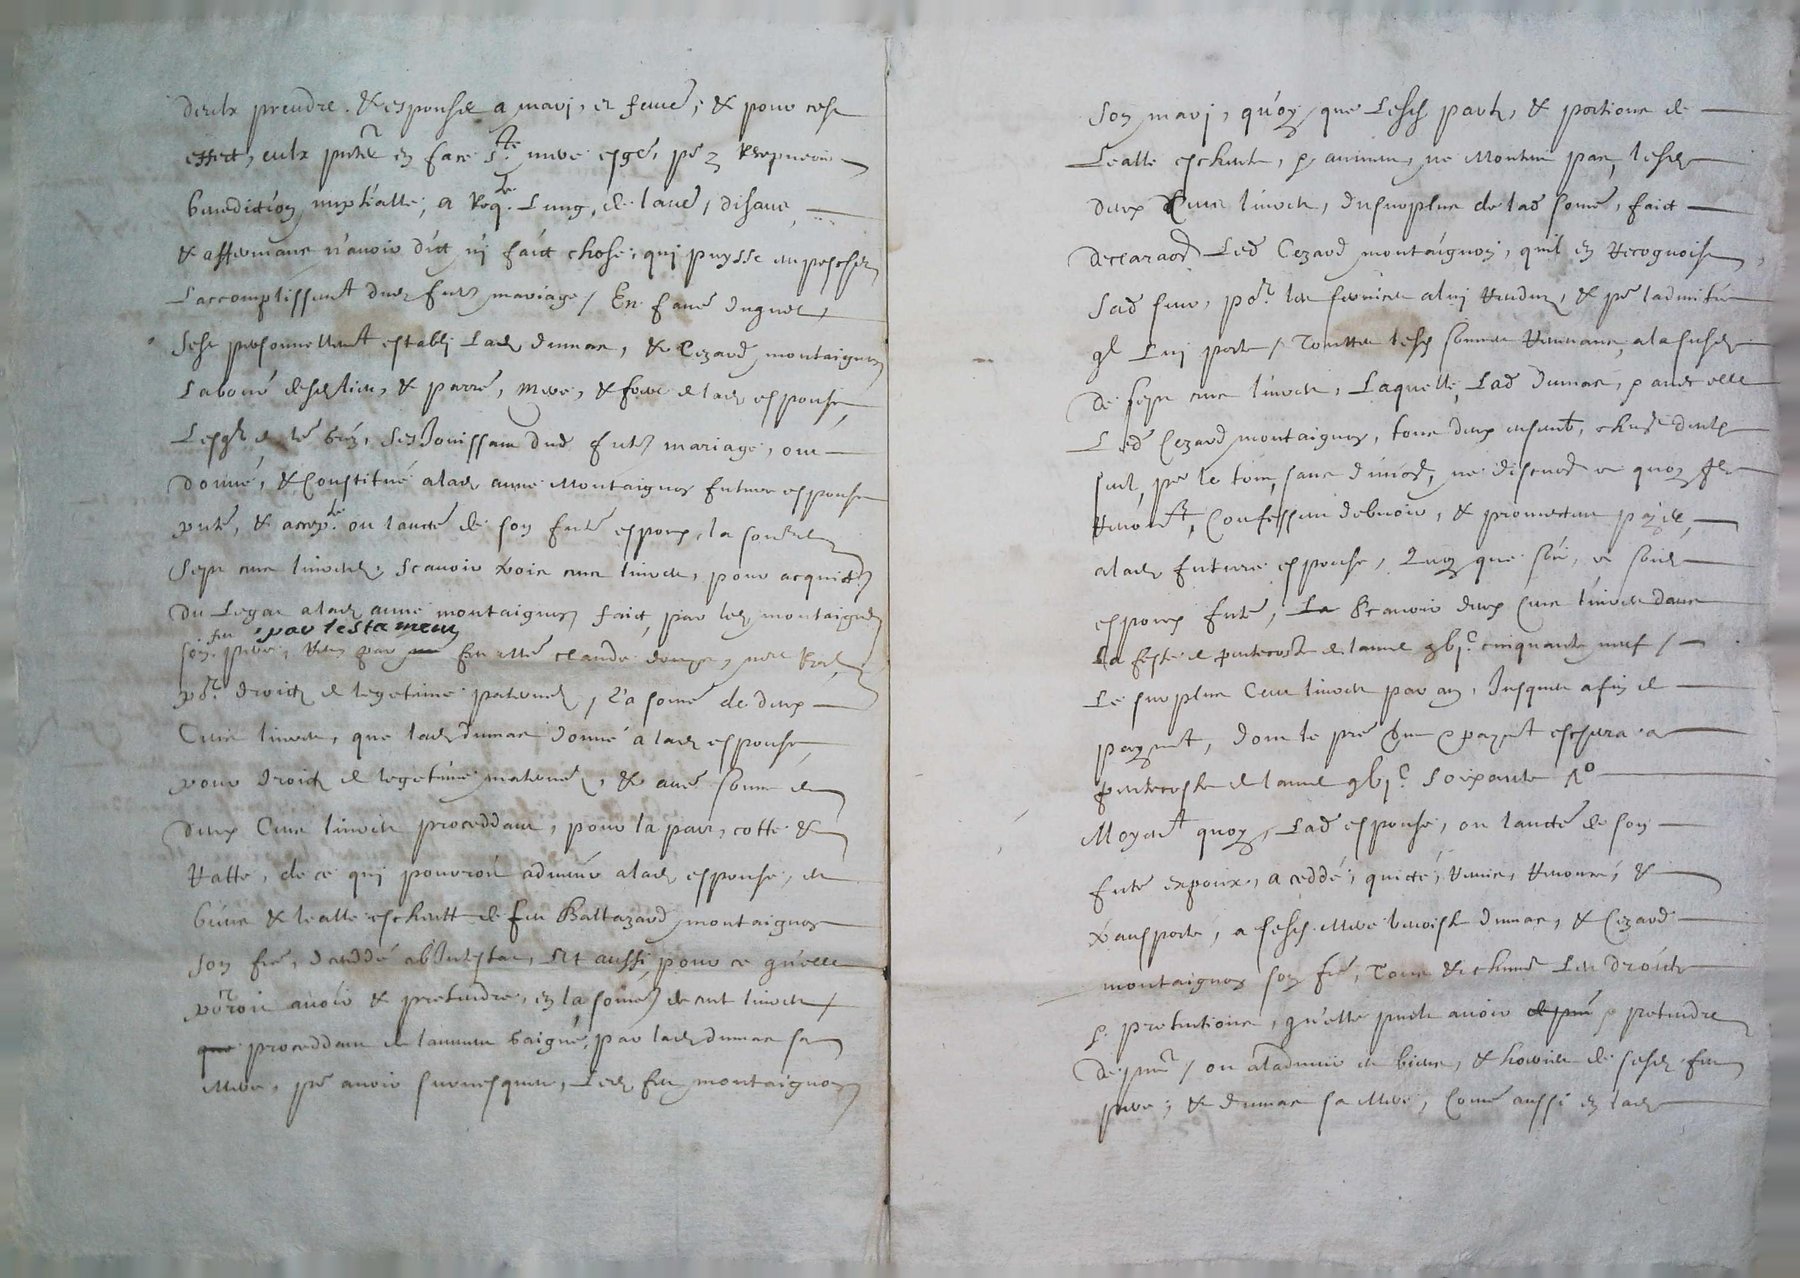 deulx prendre & espouser a mary, et feme, & pour cest
effect, eulx pnter en face ste mere esglē, pr y Recepvoir
benediction nuptialle, a Reqte Lung, de lauē, disans
& affermans n'avoir dict ny faict chose, qui puysse empescher
Laccomplissemt dud futr mariage / En faveᵉ duquel,
Sest personnellemt establj Lad dumas, & Cezard montaignon
Labouē desd lieu, & parrē, mere, & frere de lad espouse,
Lesqls de gré, Sesjouissans dud futr mariage, ont
donné, & Constitué a lad anne Montaignon future espouse
pntē, & accepte ou lauctē de son futē espoux, la somē de
Sept cens livres, Scavoir trois cens livres, pour acquict
du Legat a lad anne montaignon faict, par led montaignon
feu par testament
son pere, Receu par feu mē claude
pr droict de legetime paternel, La somē de deux
Cens livres, que lad dumas donné a lad espouse,
pour droict de legetime maternel, & auē somme de
deux Cens livres proceddans, pour la part, cotte &
Ratte, de ce qui pouvroit advenir a lad espouse, es
biens & lealle escheutte de feu Baltazard montaignon
son frē, deceddé abintestat, Et aussi pour ce qu'elle
porroit avoir & pretendre, en la somē de cent livres
que proceddans de laumen baigné, par lad dumas sa
mere, pr avoir survesqueu, Led feu montaignon
Son mary, quoy que Lesd parts, & portions de
Lealle escheute, p. advenir, ne Montent pas, lesd
deux Cens livres, du surplus de lad somē, faict
declaraon Led Cezard montaignon, quil en Recognoist
Sad seur, por les services a luy Rendus, & pr ladmitie
ql Luy porte / Touttes lesd sommes Revenans, a la susd
de sept cens livres, Laquelle, Lad dumas, p avec elle
Led Cezard montaignon, tous deux ensembt, chūg deulx
seul, pr le tout, sans divisōn, ne discuōn a quoy Ils
Renōcet, Confessent debvoir, & promectent payer,
a lad future espouse, Quoy que soit, a sond
espoux futē, La Scavoir deux Cens livres dans
La feste de pentecoste de lannee gbjc cinquante neuf /
Le surplus Cent livres par an, Jusques a fin de
payemt, dont le prē payemt eschera a
pentecoste de lannee gbjc soixante
Moyent quoy, Lad espouse, ou lauctē de son
futē expoux, a ceddé, quicté, Remis, Renoncé, &
transporte, a sesd mere benoiste dumas, & Cezard
montaignon son frē, Tous & chūns Les droicts
p. pretentions, qu'elle peult avoir de pnt p pretendre
de pnt / ou a ladvenir es biens, & hoirie de sesd feu
pere, & dumas sa mere, Come aussi en lad